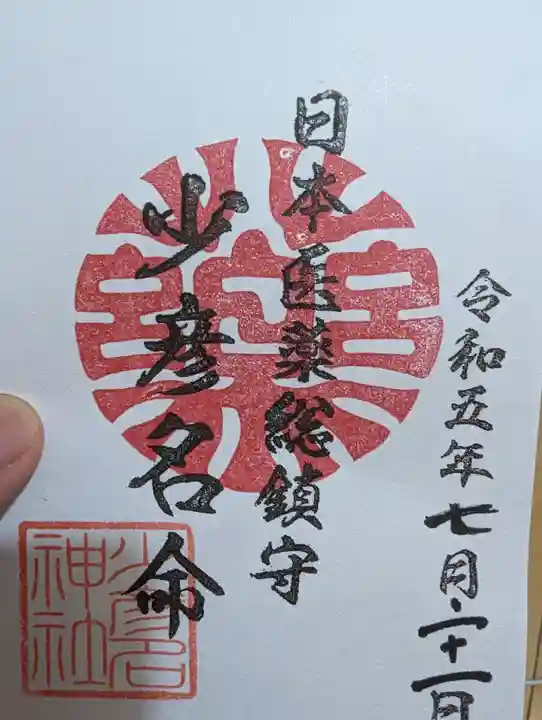 令和五年七月二十一日
日本医薬総鎮守
少彦名命
少彦名
神社